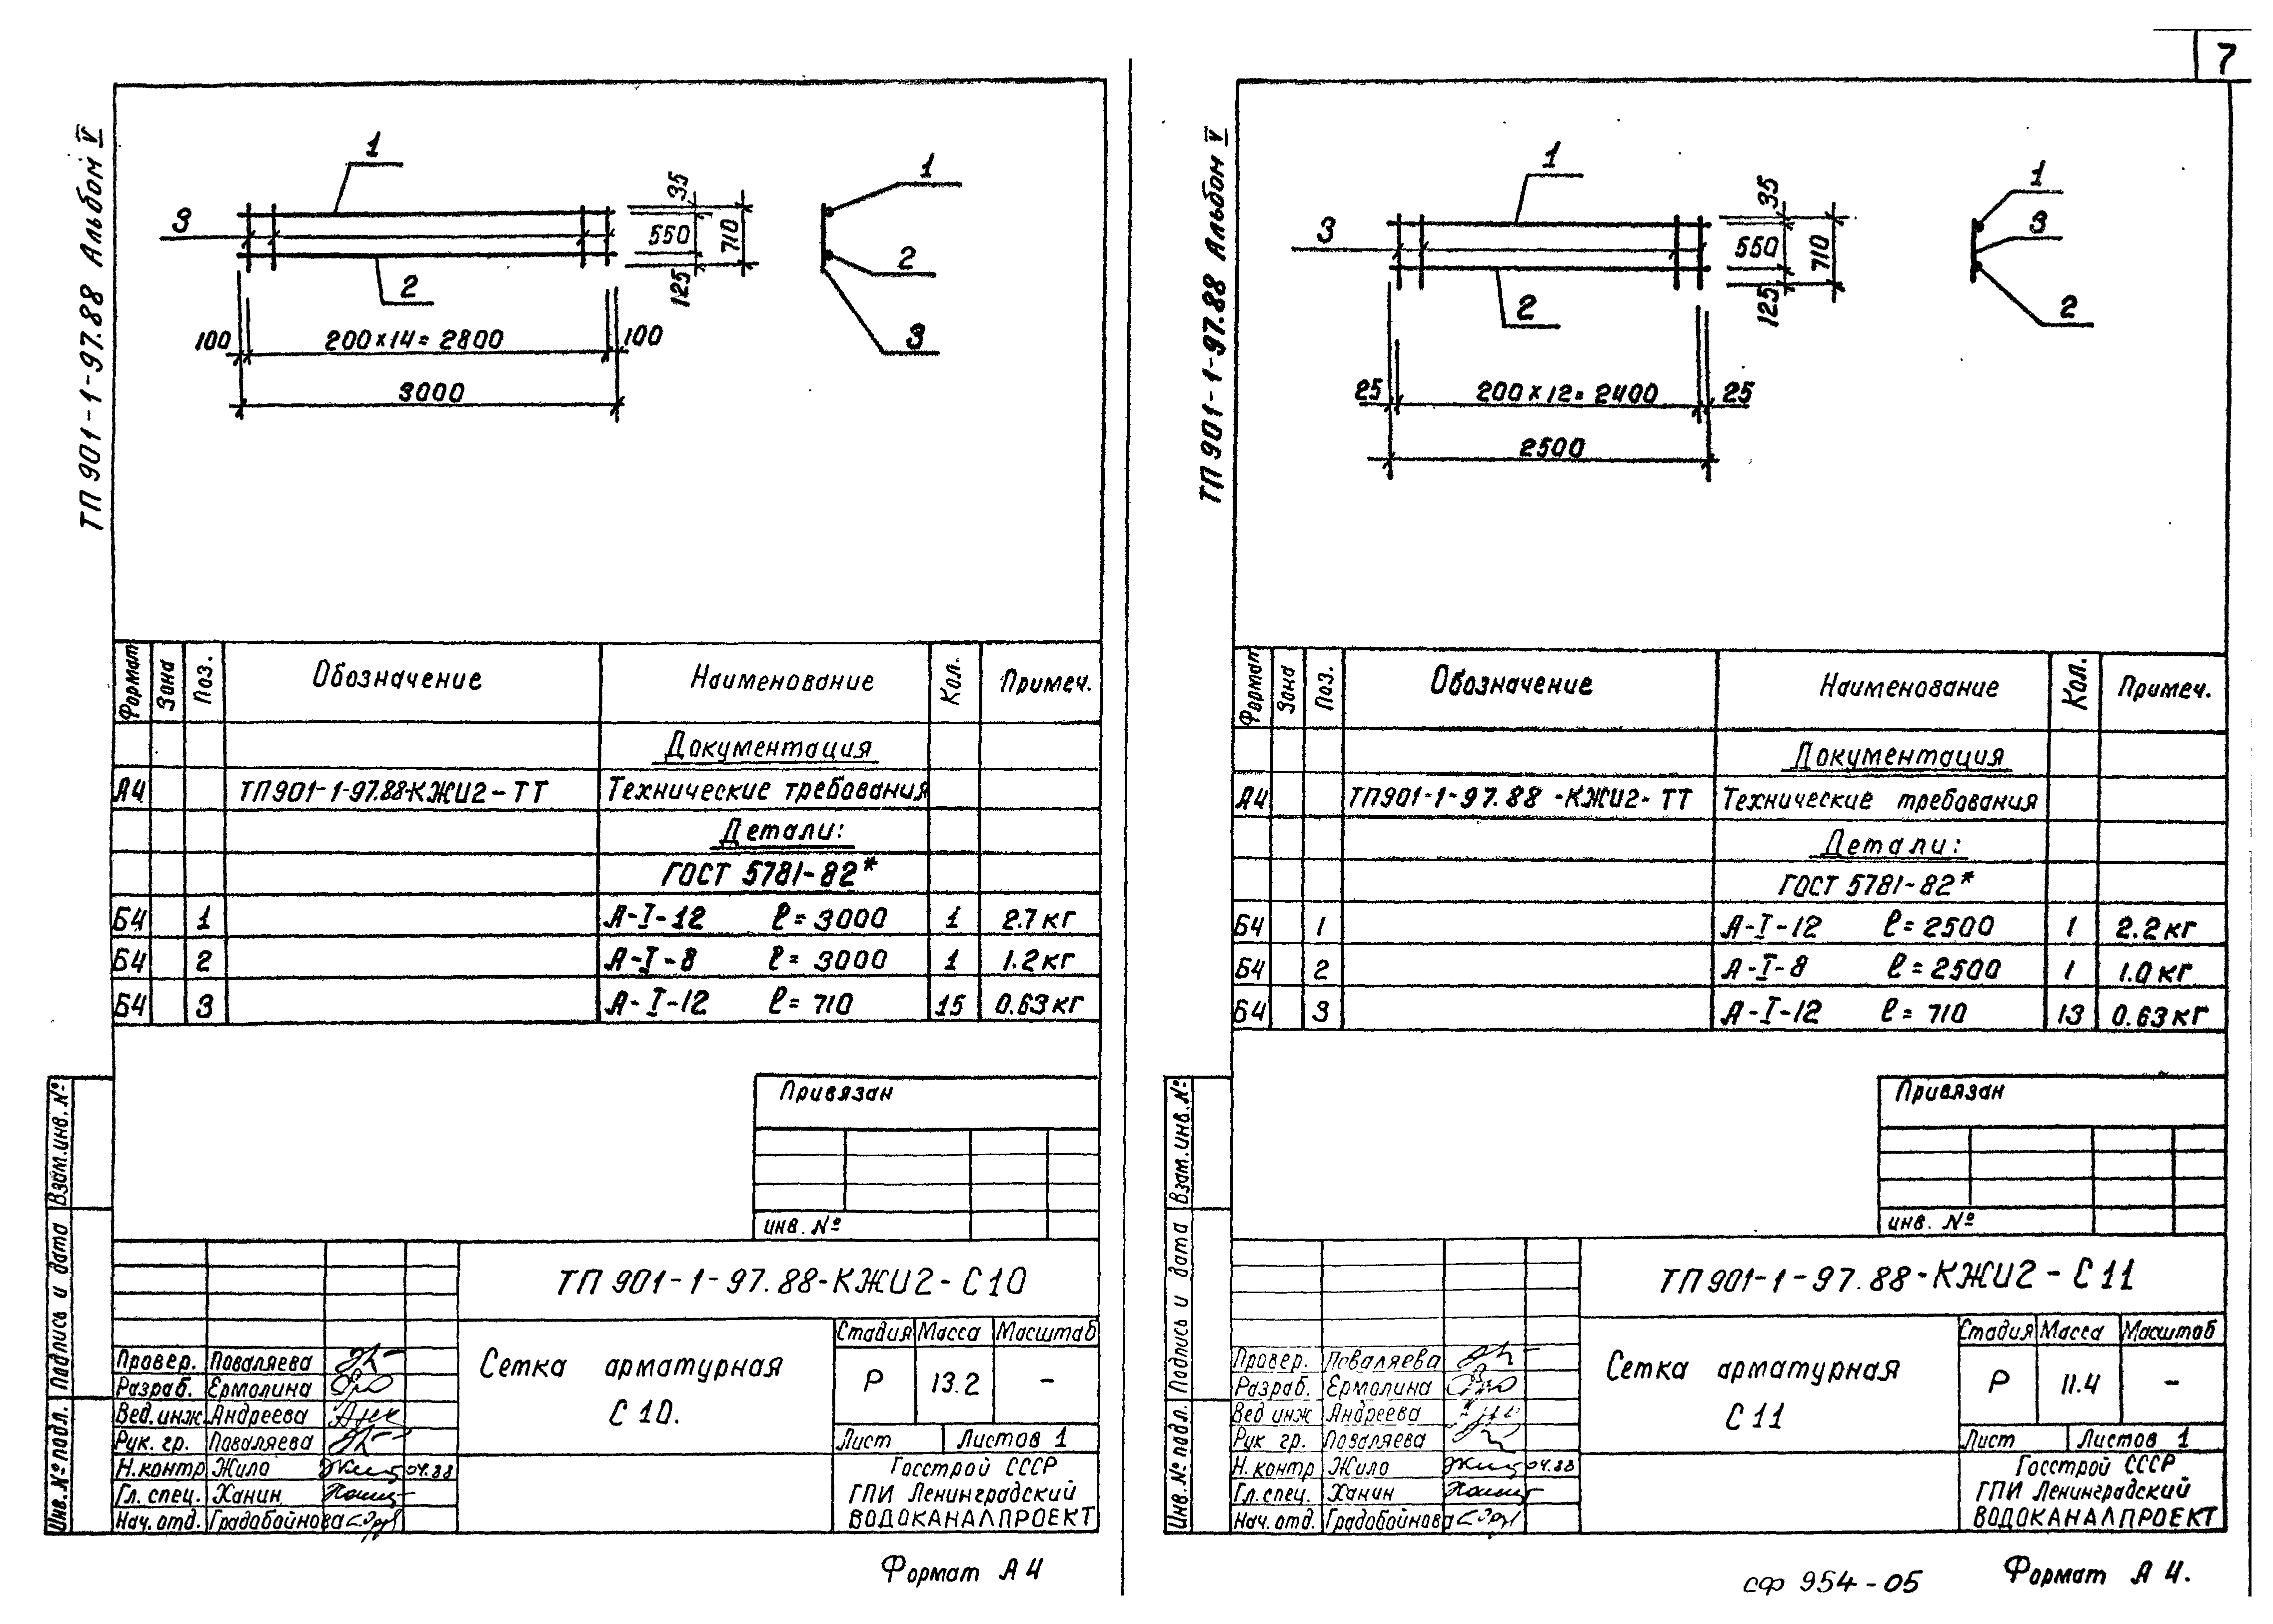 7
ТП 901-1-97.88 Альбом V
1
3
2
35
550
125
710
1
2
3
100
200×14=2800
100
3000
Формат
Зона
Поз.
Обозначение
Наименование
Кол.
Примеч.
Документация
А4 ТП901-1-97.88-КЖИ2-ТТ Технические требования
Детали:
ГОСТ 5781-82*
Б4 1 А-I-12 ℓ=3000 1 2.7кг
Б4 2 А-I-8 ℓ=3000 1 1.2кг
Б4 3 А-I-12 ℓ=710 15 0.63кг
Привязан
инв. №
Взам.инв.№
Подпись и дата
Инв.№подл.
ТП 901-1-97.88-КЖИ2-С10
Стадия Масса Масштаб
Сетка арматурная
С 10.
Р 13.2 –
Лист Листов 1
Провер. Поваляева
Разраб. Ермолина
Вед.инж Андреева
Рук. гр. Поваляева
Н.контр Жило 04.88
Гл. спец. Ханин
Нач. отд. Градобойнова
Госстрой СССР
ГПИ Ленинградский
ВОДОКАНАЛПРОЕКТ
Формат А4
ТП 901-1-97.88 Альбом V
1
3
2
35
550
125
710
1
3
2
25
200×12=2400
25
2500
Формат
Зона
Поз.
Обозначение
Наименование
Кол.
Примеч.
Документация
А4 ТП901-1-97.88-КЖИ2-ТТ Технические требования
Детали:
ГОСТ 5781-82*
Б4 1 А-I-12 ℓ=2500 1 2.2кг
Б4 2 А-I-8 ℓ=2500 1 1.0кг
Б4 3 А-I-12 ℓ=710 13 0.63кг
Привязан
инв. №
Взам.инв.№
Подпись и дата
Инв.№подл.
ТП 901-1-97.88-КЖИ2-С11
Стадия Масса Масштаб
Сетка арматурная
С 11
Р 11.4 –
Лист Листов 1
Провер. Поваляева
Разраб. Ермолина
Вед инж Андреева
Рук гр. Поваляева
Н.контр Жило 04.88
Гл.спец. Ханин
Нач.отд. Градобойнова
Госстрой СССР
ГПИ Ленинградский
ВОДОКАНАЛПРОЕКТ
сф 954-05
Формат А4.